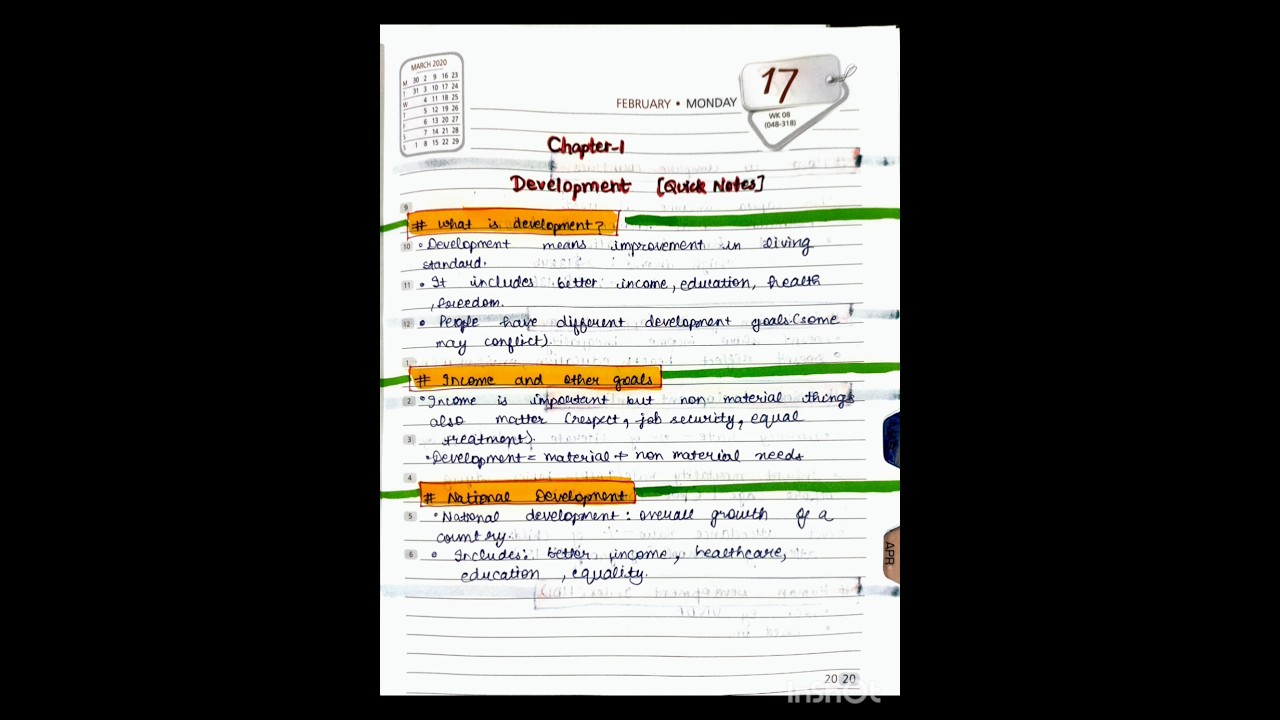 MARCH 2020
M 30 2 9 16 23
T 31 3 10 17 24
W 4 11 18 25
T 5 12 19 26
F 6 13 20 27
S 7 14 21 28
S 1 8 15 22 29
FEBRUARY • MONDAY
17
WK 08
(048-318)
Chapter-1
Development [Quick Notes]
9
# What is development?
10 • Development means improvement in living
standard.
11 • It includes better income, education, health
, freedom.
12 • People have different development goals. (some
may conflict).
1
# Income and other goals
2 • Income is important but non material things
also matter (respect, job security, equal
3 treatment).
• Development = material + non material needs
4
# National Development
5 • National development : overall growth of a
country.
6 • Includes: better income, healthcare,
education , equality.
APR
20 20
InShOt